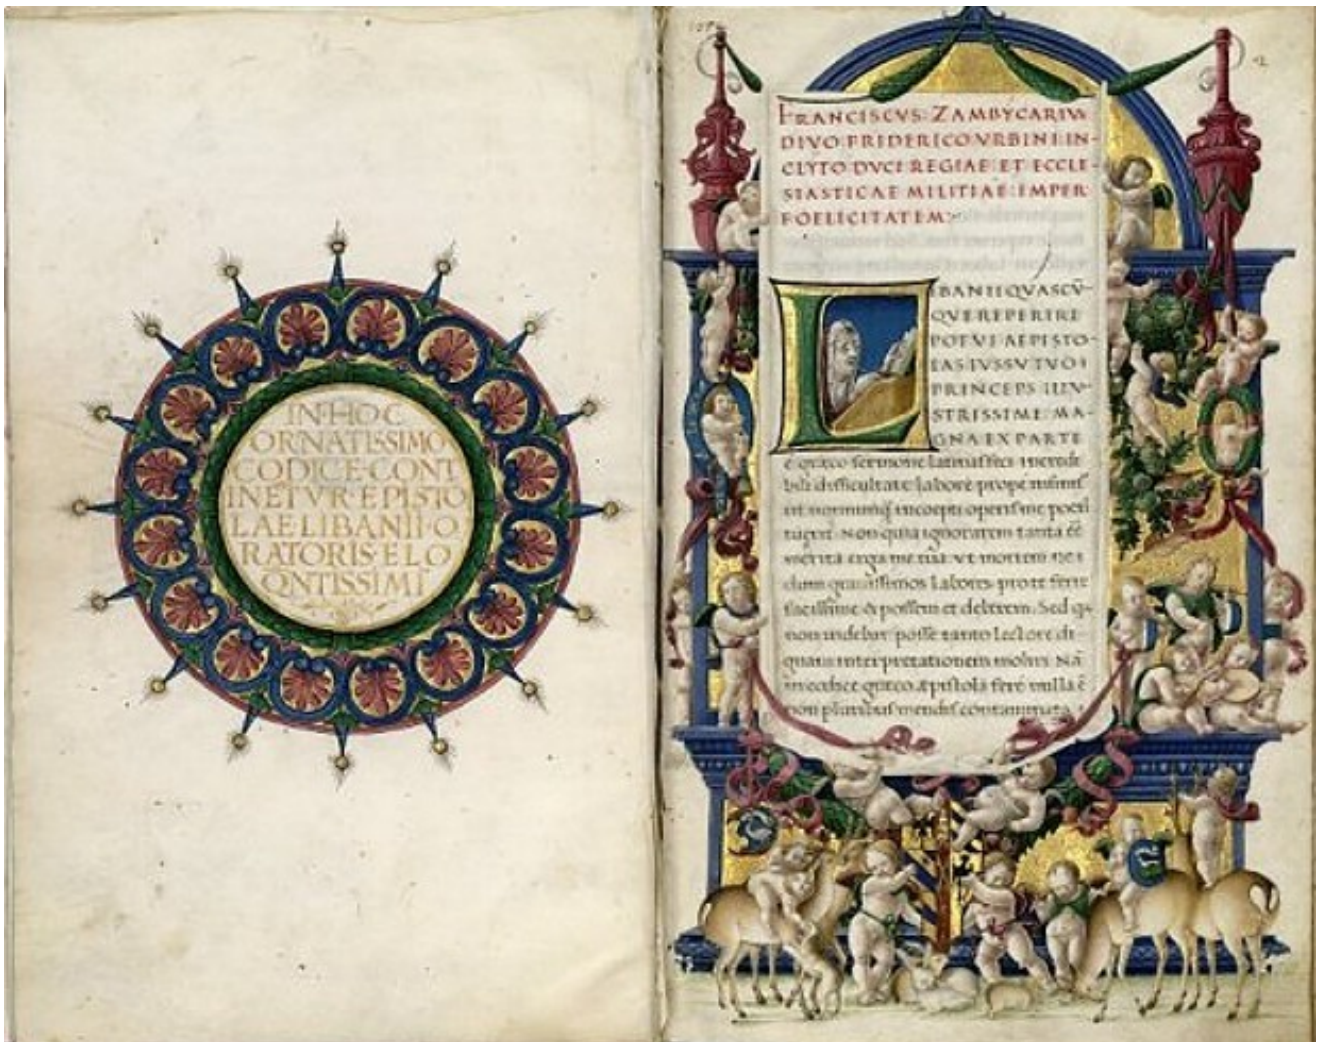 IN·HOC
ORNATISSIMO
CODICE·CONT
INETVR·EPISTO
LAE·LIBANII·O
RATORIS·ELO
QNTISSIMI
FRANCISCVS·ZAMBYCARIVS
DIVO·FRIDERICO·VRBINI·IN-
CLYTO·DVCI·REGIAE·ET·ECCLE-
SIASTICAE·MILITIAE·IMPER
FOELICITATEM:
LIBANII QVASCV̄-
QVE REPERIRE
POTVI AEPISTO-
LAS IVSSV TVO:
PRINCEPS ILLV-
STRISSIME: MA-
GNA EX PARTE
e graeco sermone latinas feci incredi
bili difficultate: labore prope infinito
ut non nunq̄ incepti operis me poeni
tuerit. Non quia ignorarem tanta eē
merita erga me tua: vt mortem ne
dum grauissimos Labores pro te ferre
facillime & possem et deberem. Sed q
non videbar posse tanto Lectore di-
quam interpretationem moliri. Nā
in codice graeco aepistola fere nulla ē
non pluribus mendis contaminata